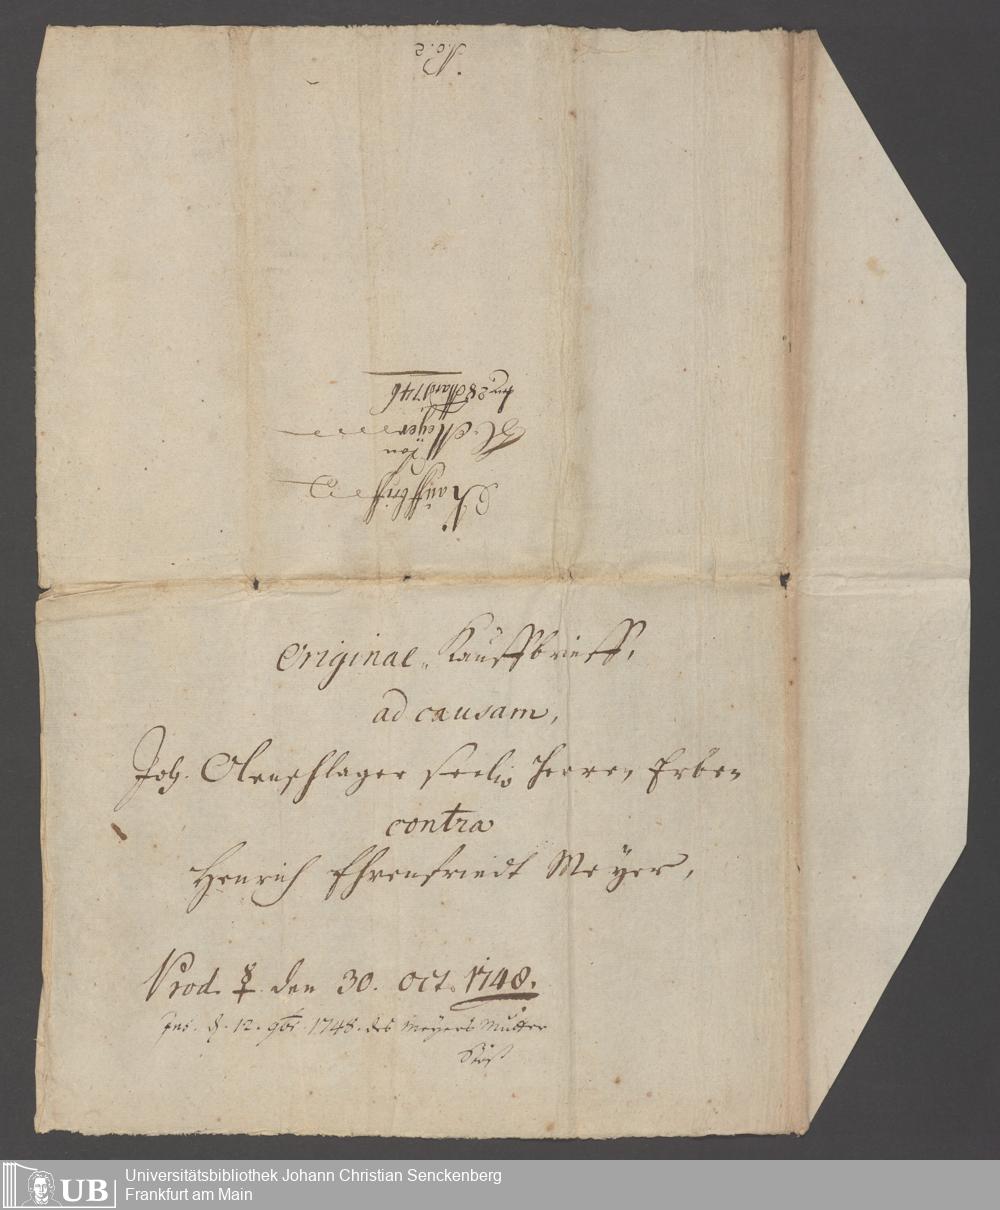 No. 2
Kauffbrieff
von
H. Meÿer
den 28 Mart 1746
Original Kauffbrieff,
ad causam,
Joh. Olenschlager seelig Herren Erben
contra
Henrich Ehrenfriedt Meÿer,
Prod. ☿ den 30. Oct. 1748.
12. 9br 1748. des Meÿers Mutter
Universitätsbibliothek Johann Christian Senckenberg
Frankfurt am Main
UB